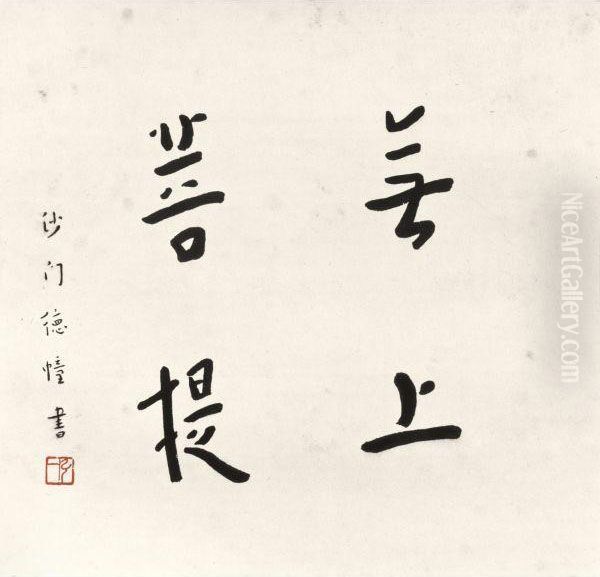 無上
菩提
沙门德幢書
NiceArtGallery.com